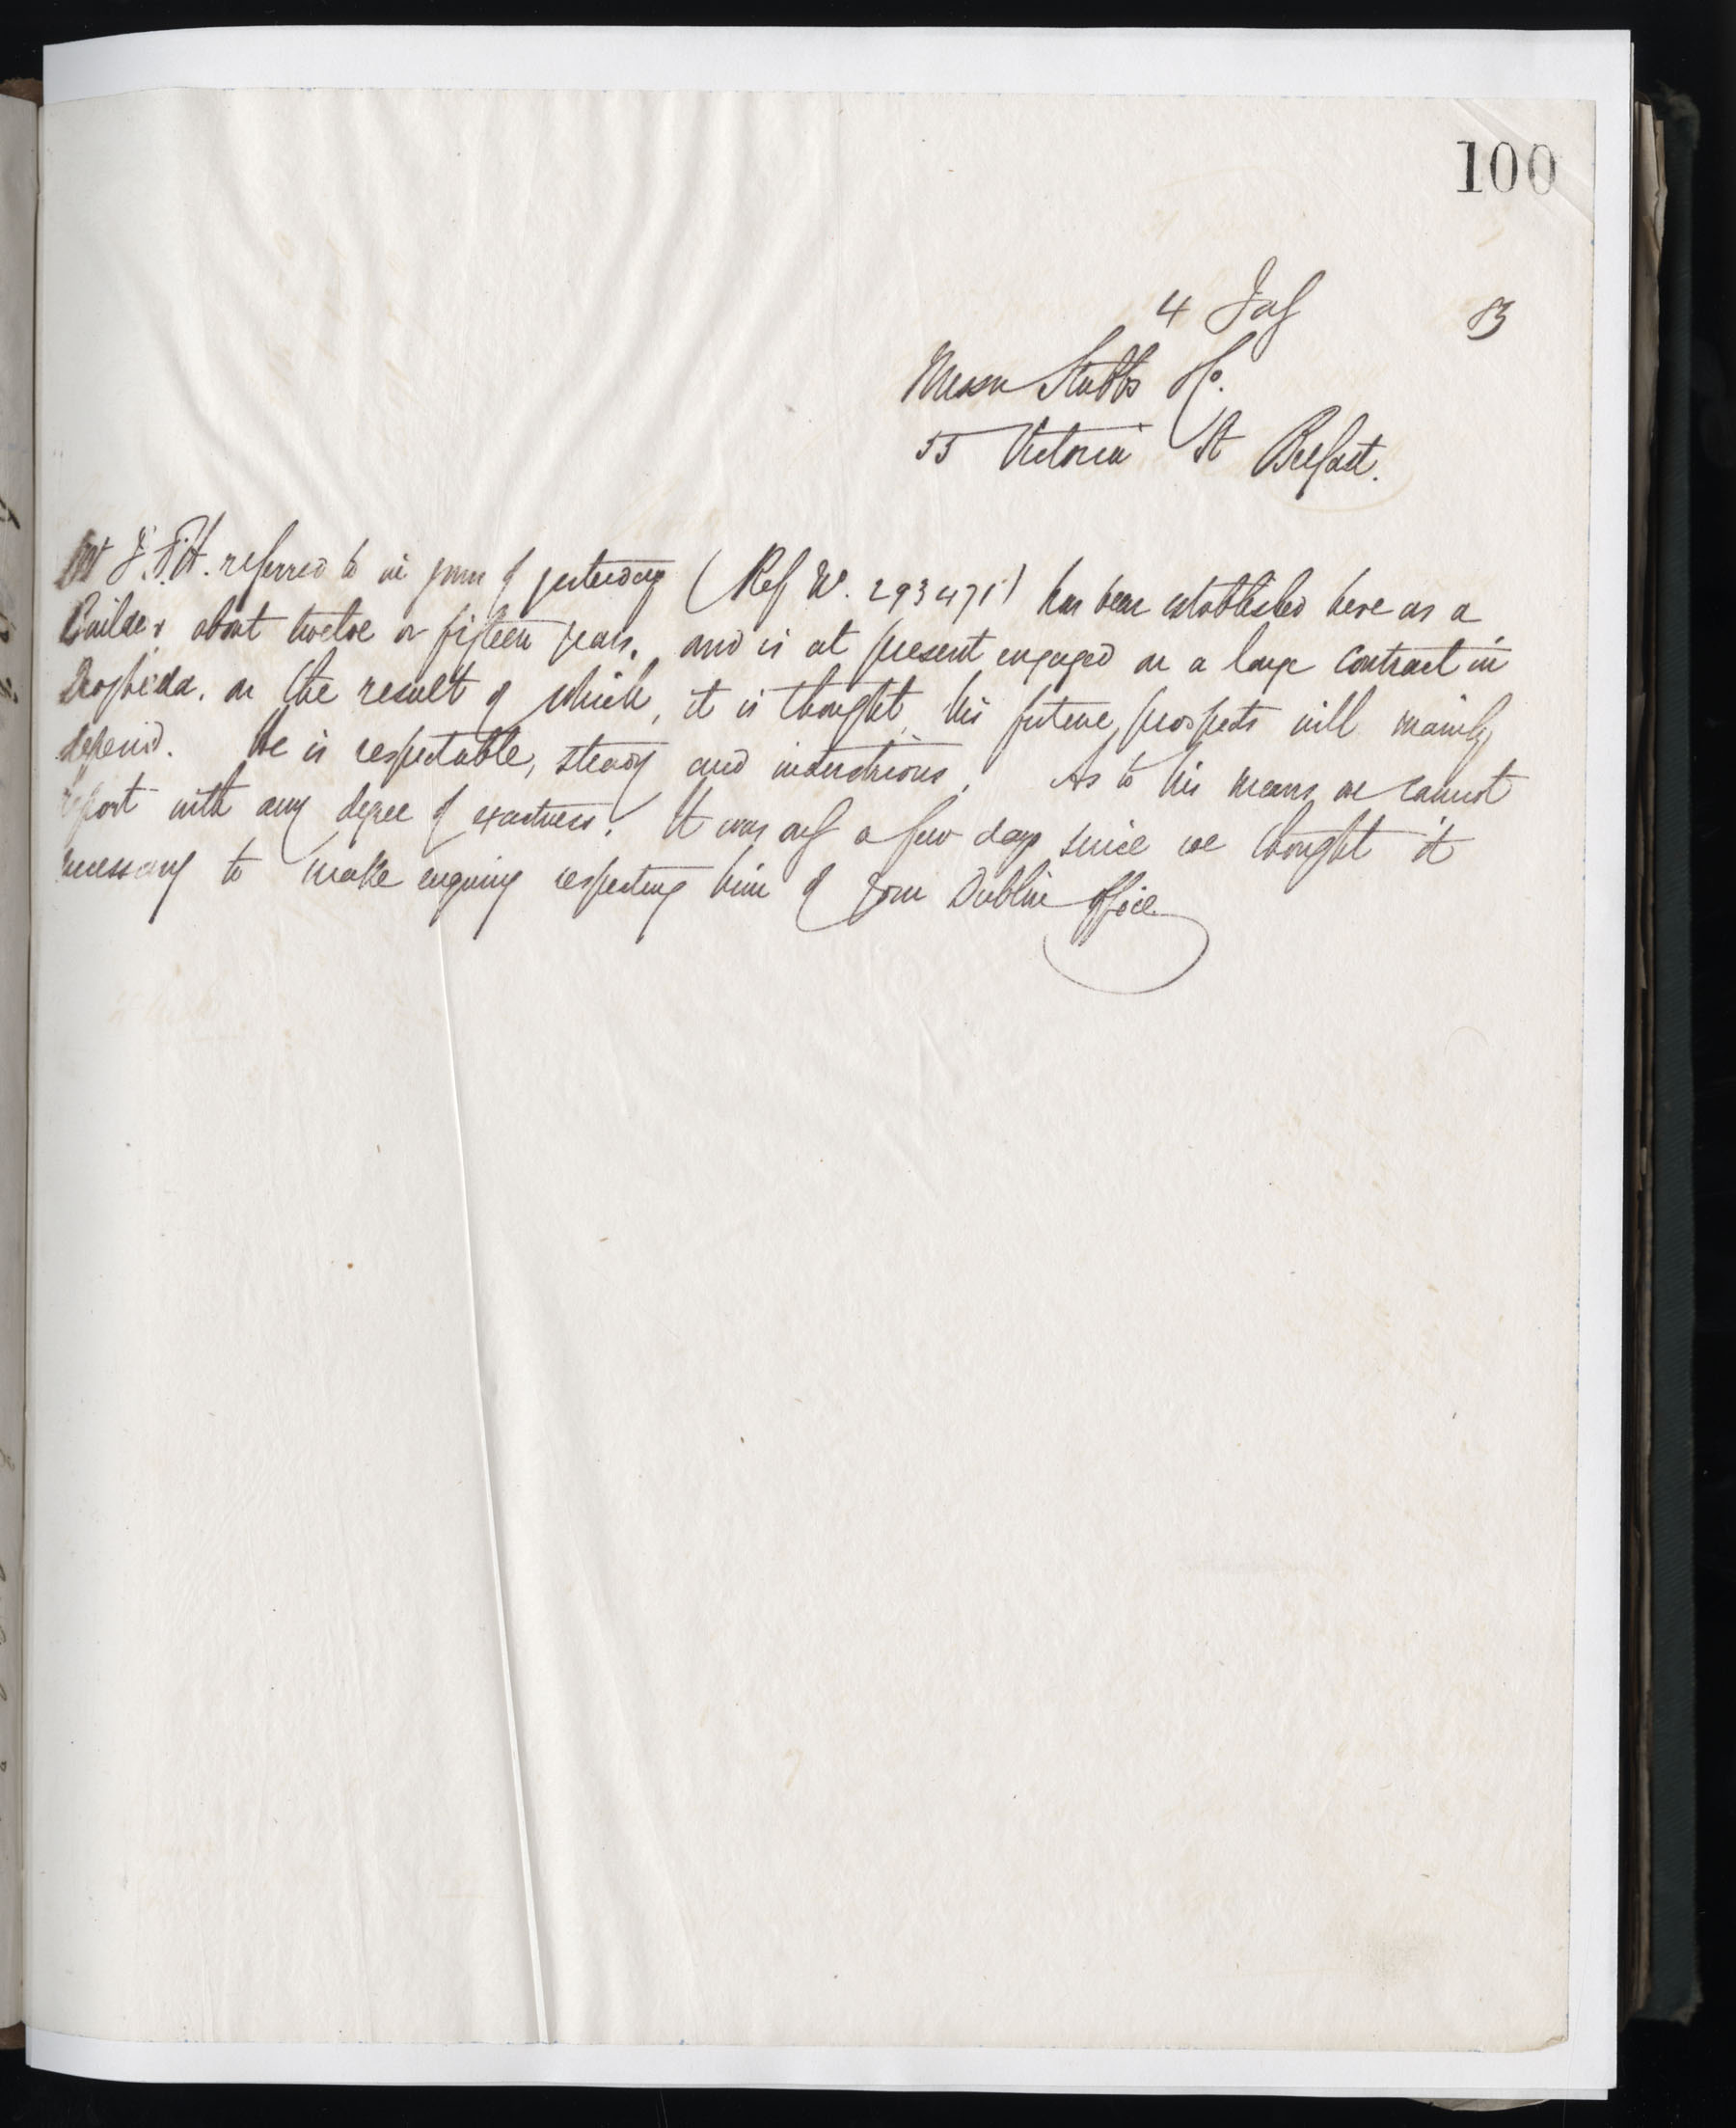 100
4 July 83
Messrs Stubbs &Co.
55 Victoria St Belfast.
Mr referred to in yours of yesterday (Ref W. 293471) has been established here as a
Builder about twelve or fifteen years, and is at present engaged on a large contract in
Drogheda, on the result of which, it is thought, his future prospects will mainly
depend. He is respectable, steady and industrious. As to his means we cannot
report with any degree of exactness. It was only a few days since we thought it
necessary to make enquiry respecting him of your Dublin Office